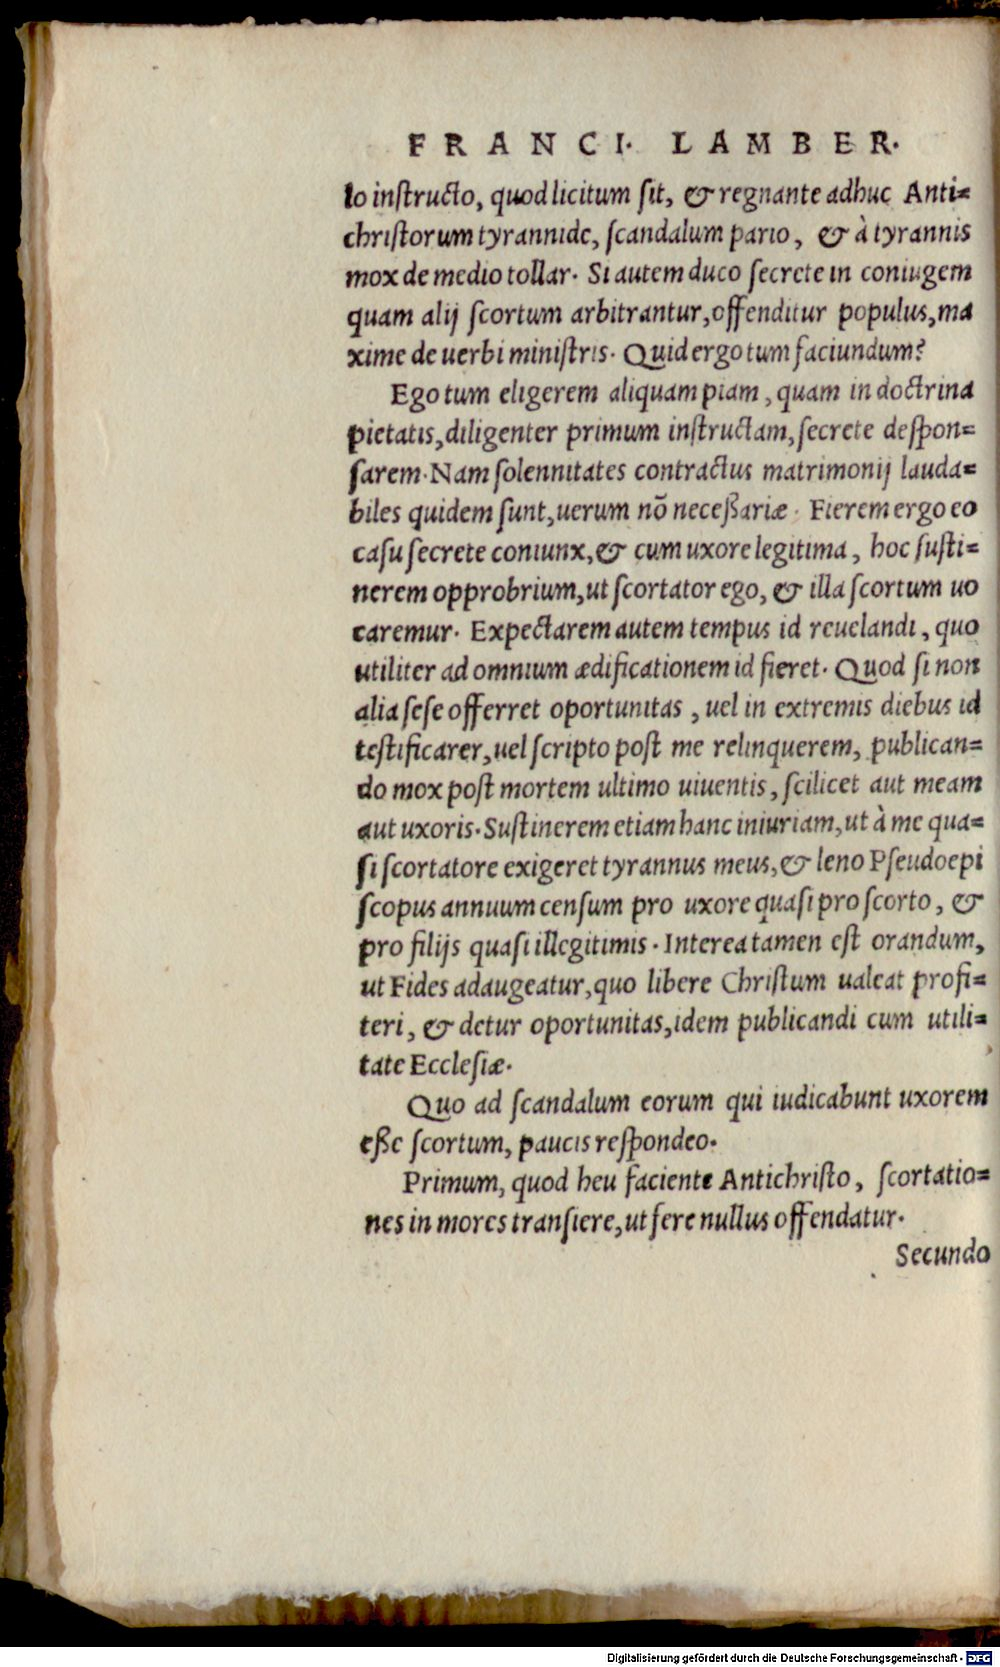 FRANCI. LAMBER.
lo inſtructo, quod licitum ſit, & regnante adhuc Anti=
chriſtorum tyrannide, ſcandalum pario, & à tyrannis
mox de medio tollar. Si autem duco ſecrete in coniugem
quam alij ſcortum arbitrantur, offenditur populus, ma
xime de uerbi miniſtris. Quid ergo tum faciundum?
Ego tum eligerem aliquam piam, quam in doctrina
pietatis, diligenter primum inſtructam, ſecrete deſpon=
ſarem. Nam ſolennitates contractus matrimonij lauda=
biles quidem ſunt, uerum nō neceßariæ. Fierem ergo eo
caſu ſecrete coniunx, & cum uxore legitima, hoc ſuſti=
nerem opprobrium, ut ſcortator ego, & illa ſcortum uo
caremur. Expectarem autem tempus id reuelandi, quo
utiliter ad omnium ædificationem id fieret. Quod ſi non
alia ſeſe offerret oportunitas, uel in extremis diebus id
teſtificarer, uel ſcripto poſt me relinquerem, publican=
do mox poſt mortem ultimo uiuentis, ſcilicet aut meam
aut uxoris. Suſtinerem etiam hanc iniuriam, ut à me qua=
ſi ſcortatore exigeret tyrannus meus, & leno Pſeudoepi
ſcopus annuum cenſum pro uxore quaſi pro ſcorto, &
pro filijs quaſi illegitimis. Interea tamen eſt orandum,
ut Fides adaugeatur, quo libere Chriſtum ualeat profi=
teri, & detur oportunitas, idem publicandi cum utili=
tate Eccleſiæ.
Quo ad ſcandalum eorum qui iudicabunt uxorem
eße ſcortum, paucis reſpondeo.
Primum, quod heu faciente Antichriſto, ſcortatio=
nes in mores tranſiere, ut fere nullus offendatur.
Secundo
Digitalisierung gefördert durch die Deutsche Forschungsgemeinschaft - DFG